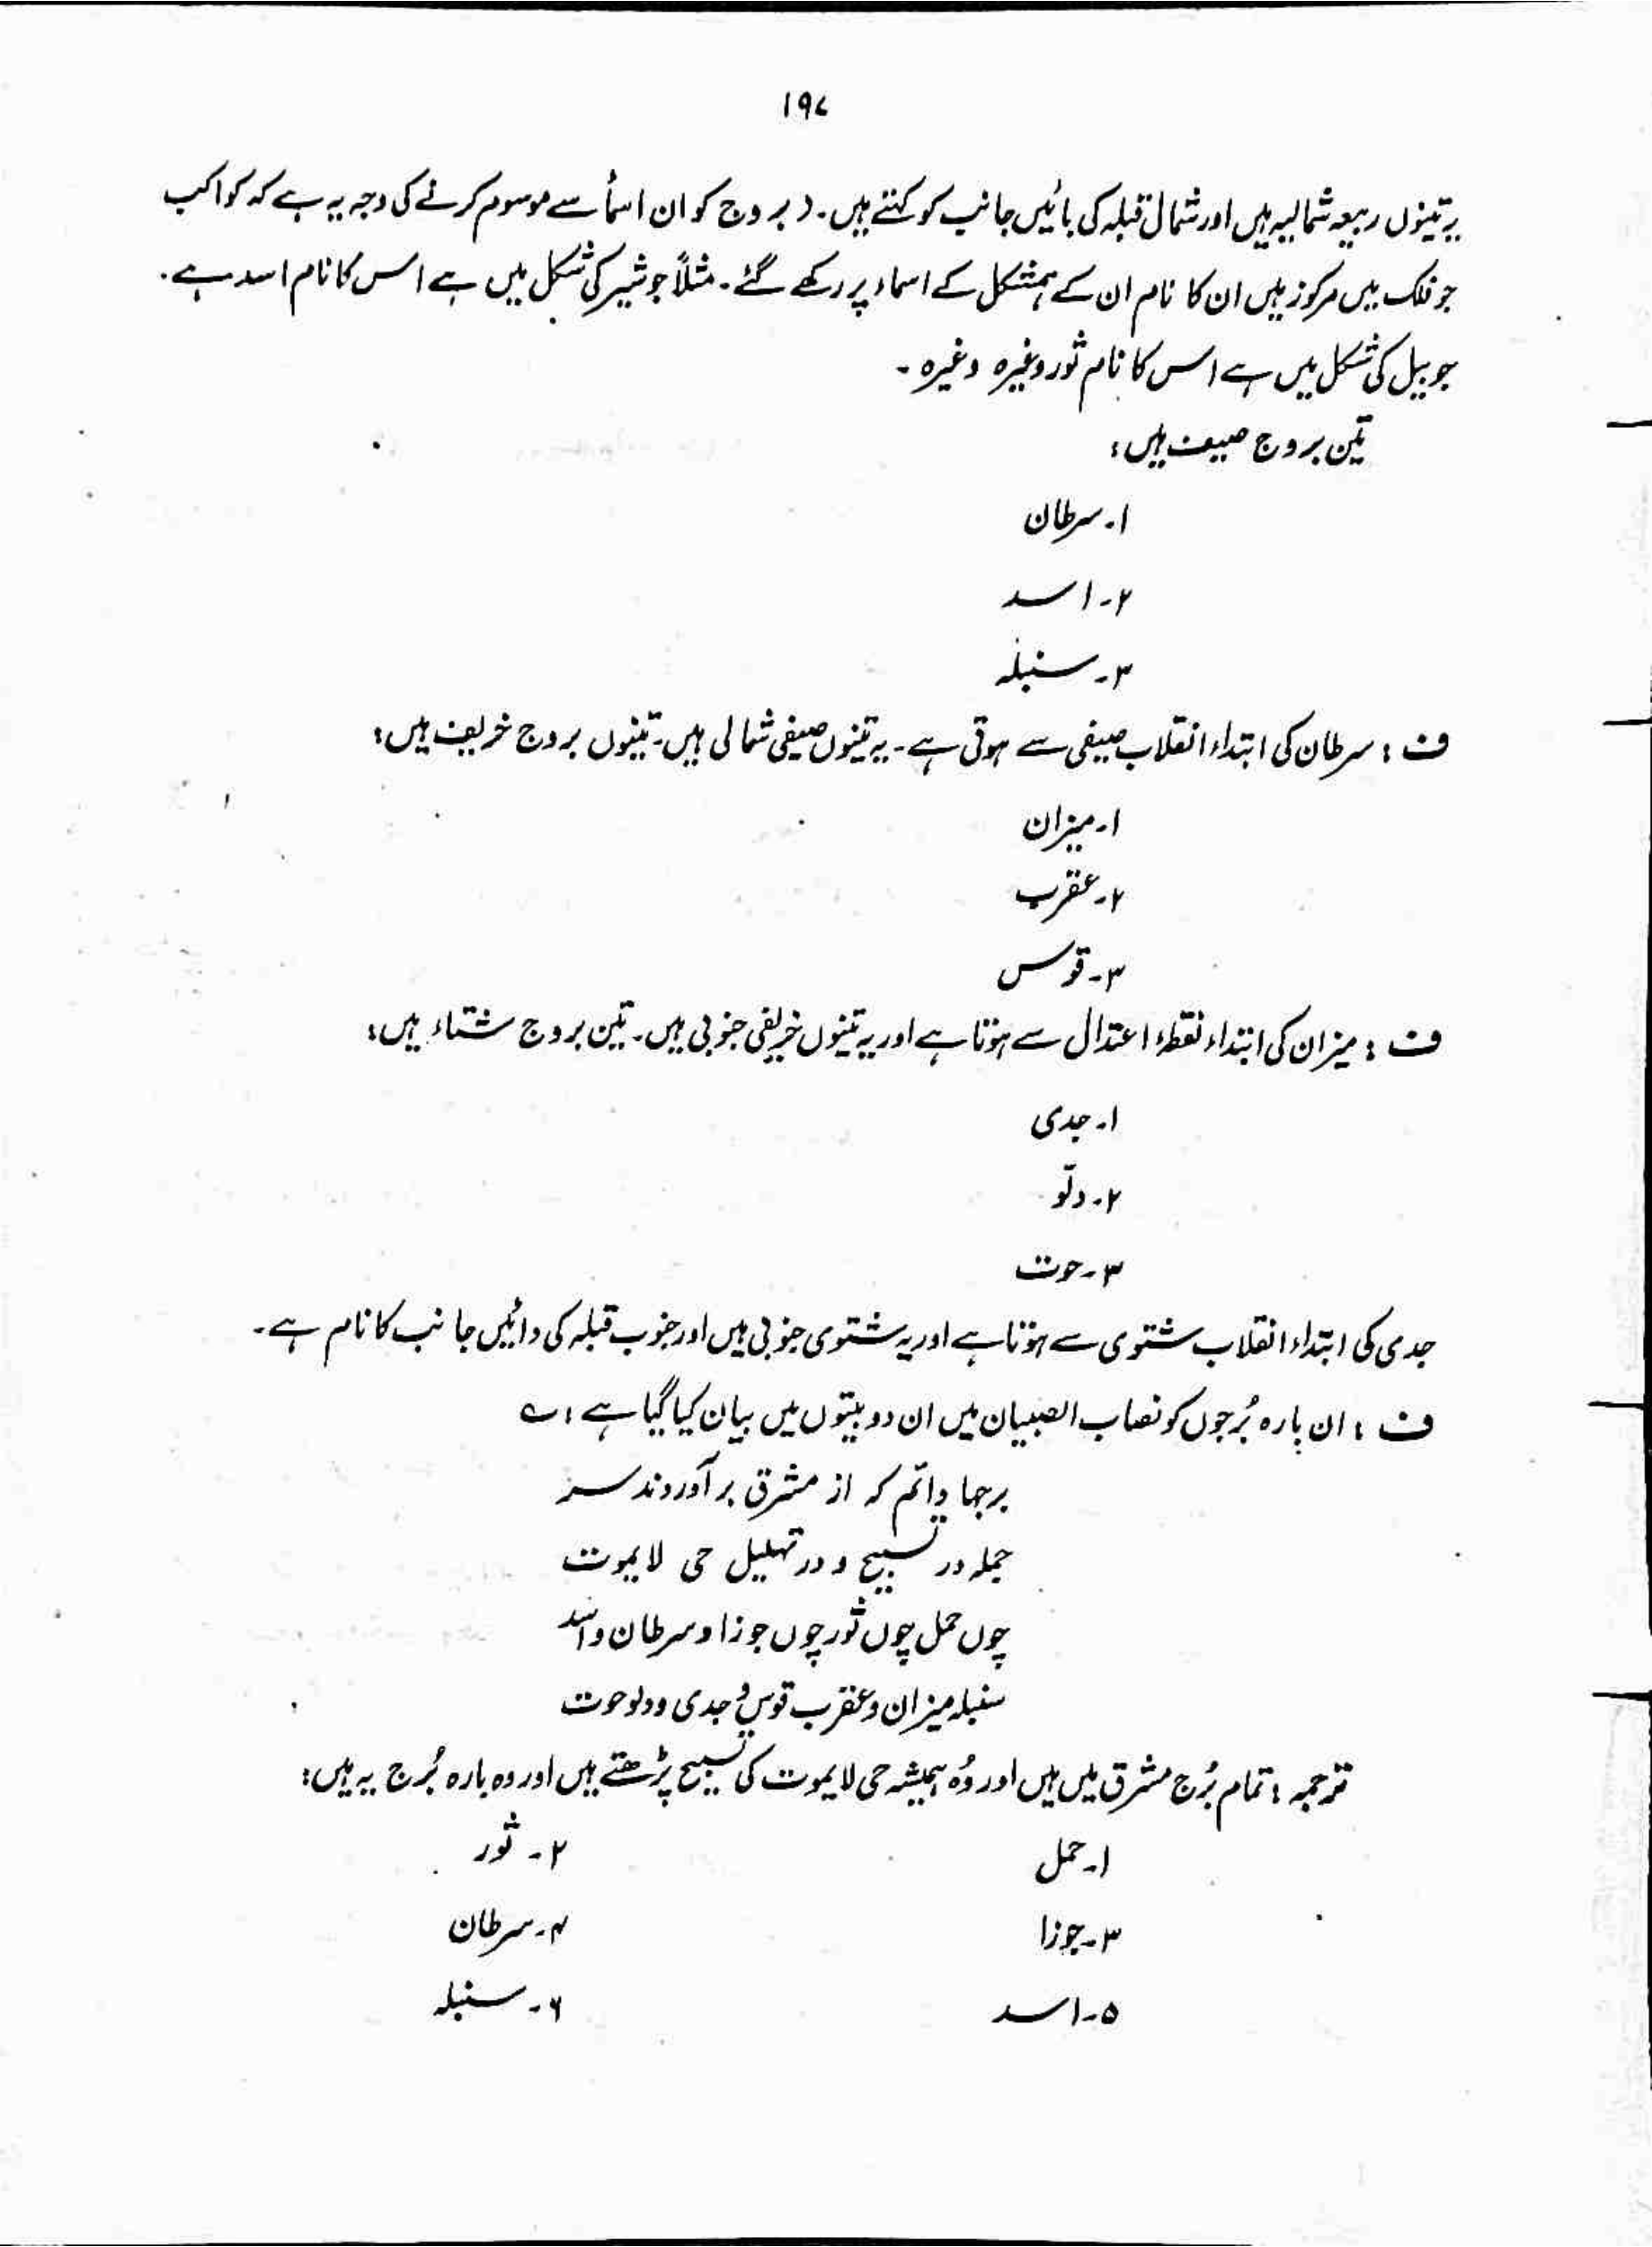 ۱۹۷
یہ تینوں ربیعہ شمالیہ ہیں اور شمال قبلہ کی بائیں جانب کو کہتے ہیں۔ (بروج کو ان اسمأ سے موسوم کرنے کی وجہ یہ ہے کہ کواکب
جو فلک میں مرکوز ہیں ان کا نام ان کے ہمشکل کے اسماء پر رکھے گئے۔ مثلاً جو شیر کی شکل میں ہے اس کا نام اسد ہے۔
جو بیل کی شکل میں ہے اس کا نام ثور وغیرہ وغیرہ ۔
تین بروج صیف ہیں :
۱۔ سرطان
۲۔ اسد
۳۔ سنبلہ
ف : سرطان کی ابتداء انقلاب صیفی سے ہوتی ہے ۔ یہ تینوں صیفی شمالی ہیں۔ تینوں بروج خریف ہیں :
۱۔ میزان
۲۔ عقرب
۳۔ قوس
ف : میزان کی ابتداء نقطۂ اعتدال سے ہوتا ہے اور یہ تینوں خریفی جنوبی ہیں۔ تین بروج شتاء ہیں :
۱۔ جدی
۲۔ دلو
۳۔ حوت
جدی کی ابتداء انقلاب شتوی سے ہوتا ہے اور یہ شتوی جنوبی ہیں اور جنوب قبلہ کی دائیں جانب کا نام ہے۔
ف : ان بارہ بُرجوں کو نصاب الصبیان میں ان دو بیتوں میں بیان کیا گیا ہے : ؎
برجہا دائم کہ از مشرق برآوردند سر
جملہ در تسبیح و در تہلیل حی لایموت
چوں حمل چوں ثور چوں جوزا و سرطان و اسد
سنبلہ میزان و عقرب قوس و جدی و دلو حوت
ترجمہ : تمام بُرج مشرق میں ہیں اور وُہ ہمیشہ حی لایموت کی تسبیح پڑھتے ہیں اور وہ بارہ بُرج یہ ہیں :
۱۔ حمل ۲۔ ثور
۳۔ جوزا ۴۔ سرطان
۵۔ اسد ۶۔ سنبلہ